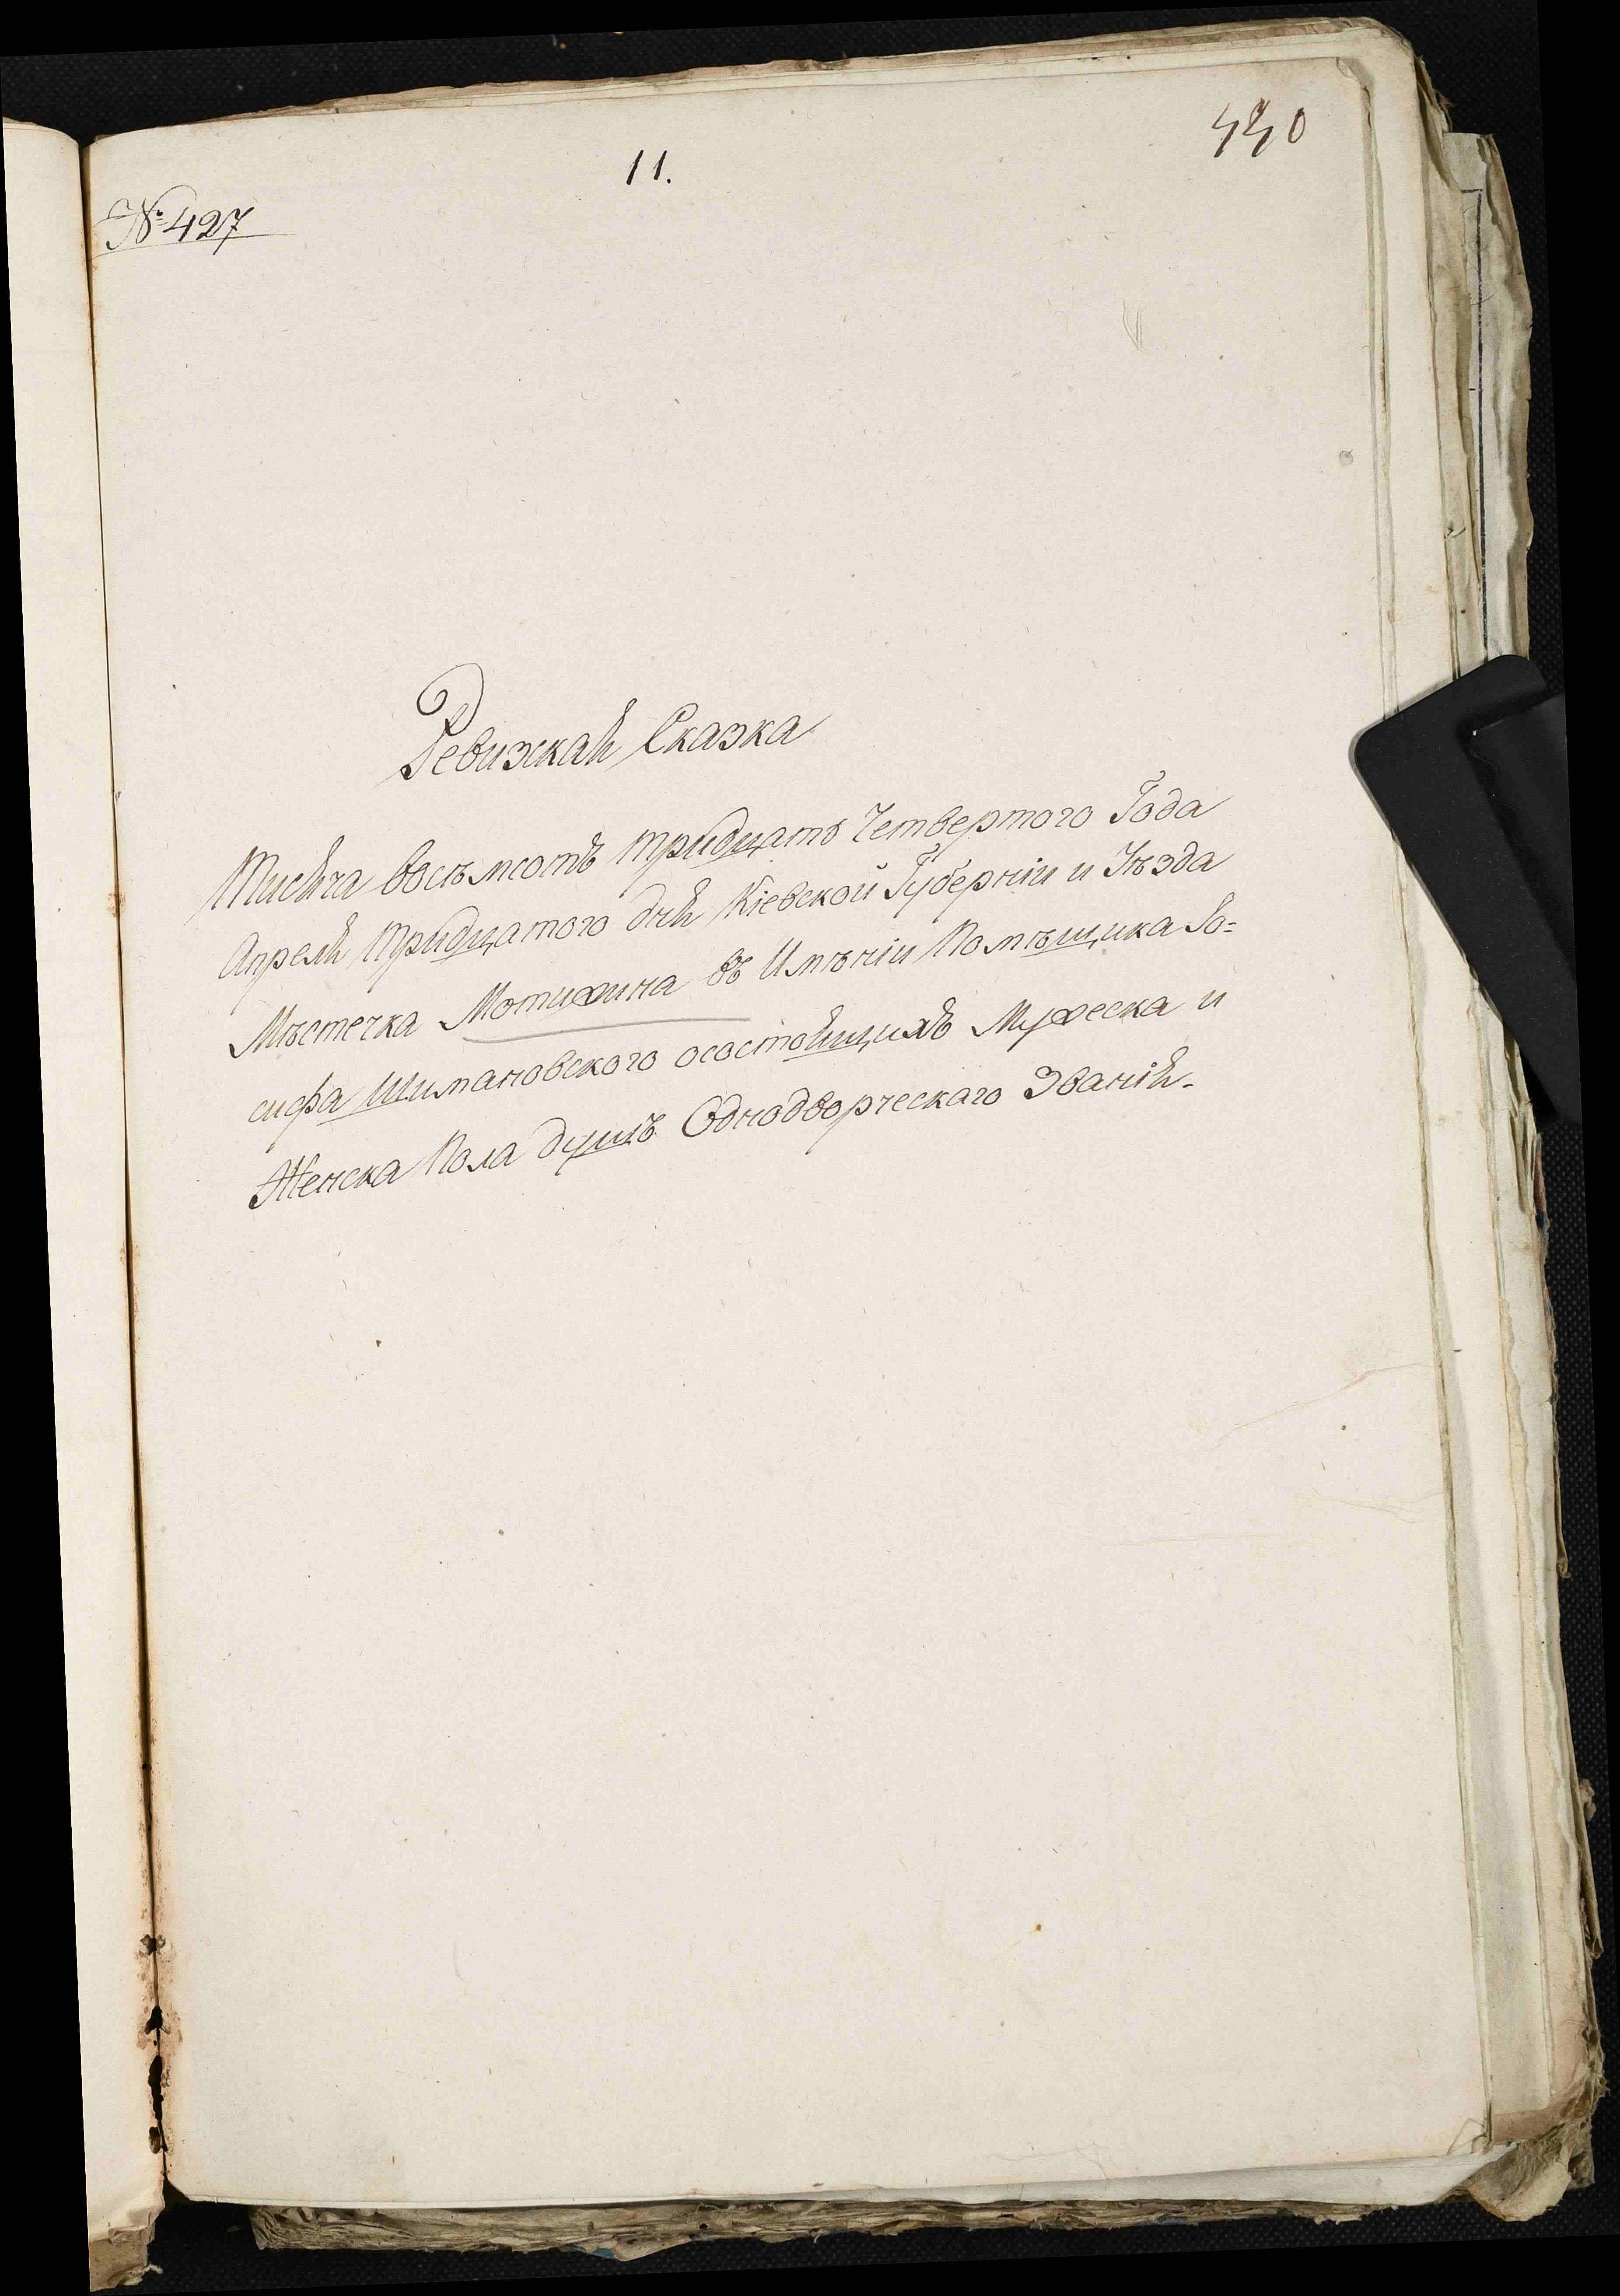 11.
440
№ 427
Ревизкая Сказка
Тисяча восъмсотъ тридцатъ Четвертого Года
Апреля тридцатого дня Кіевской Губерніи и Уѣзда
Мѣстечка Мотижина въ Имѣніи Помѣщика Іо=
сифа Шимановского осостоящихъ Мужеска и
Женска Пола душъ Однодворческаго Званія.